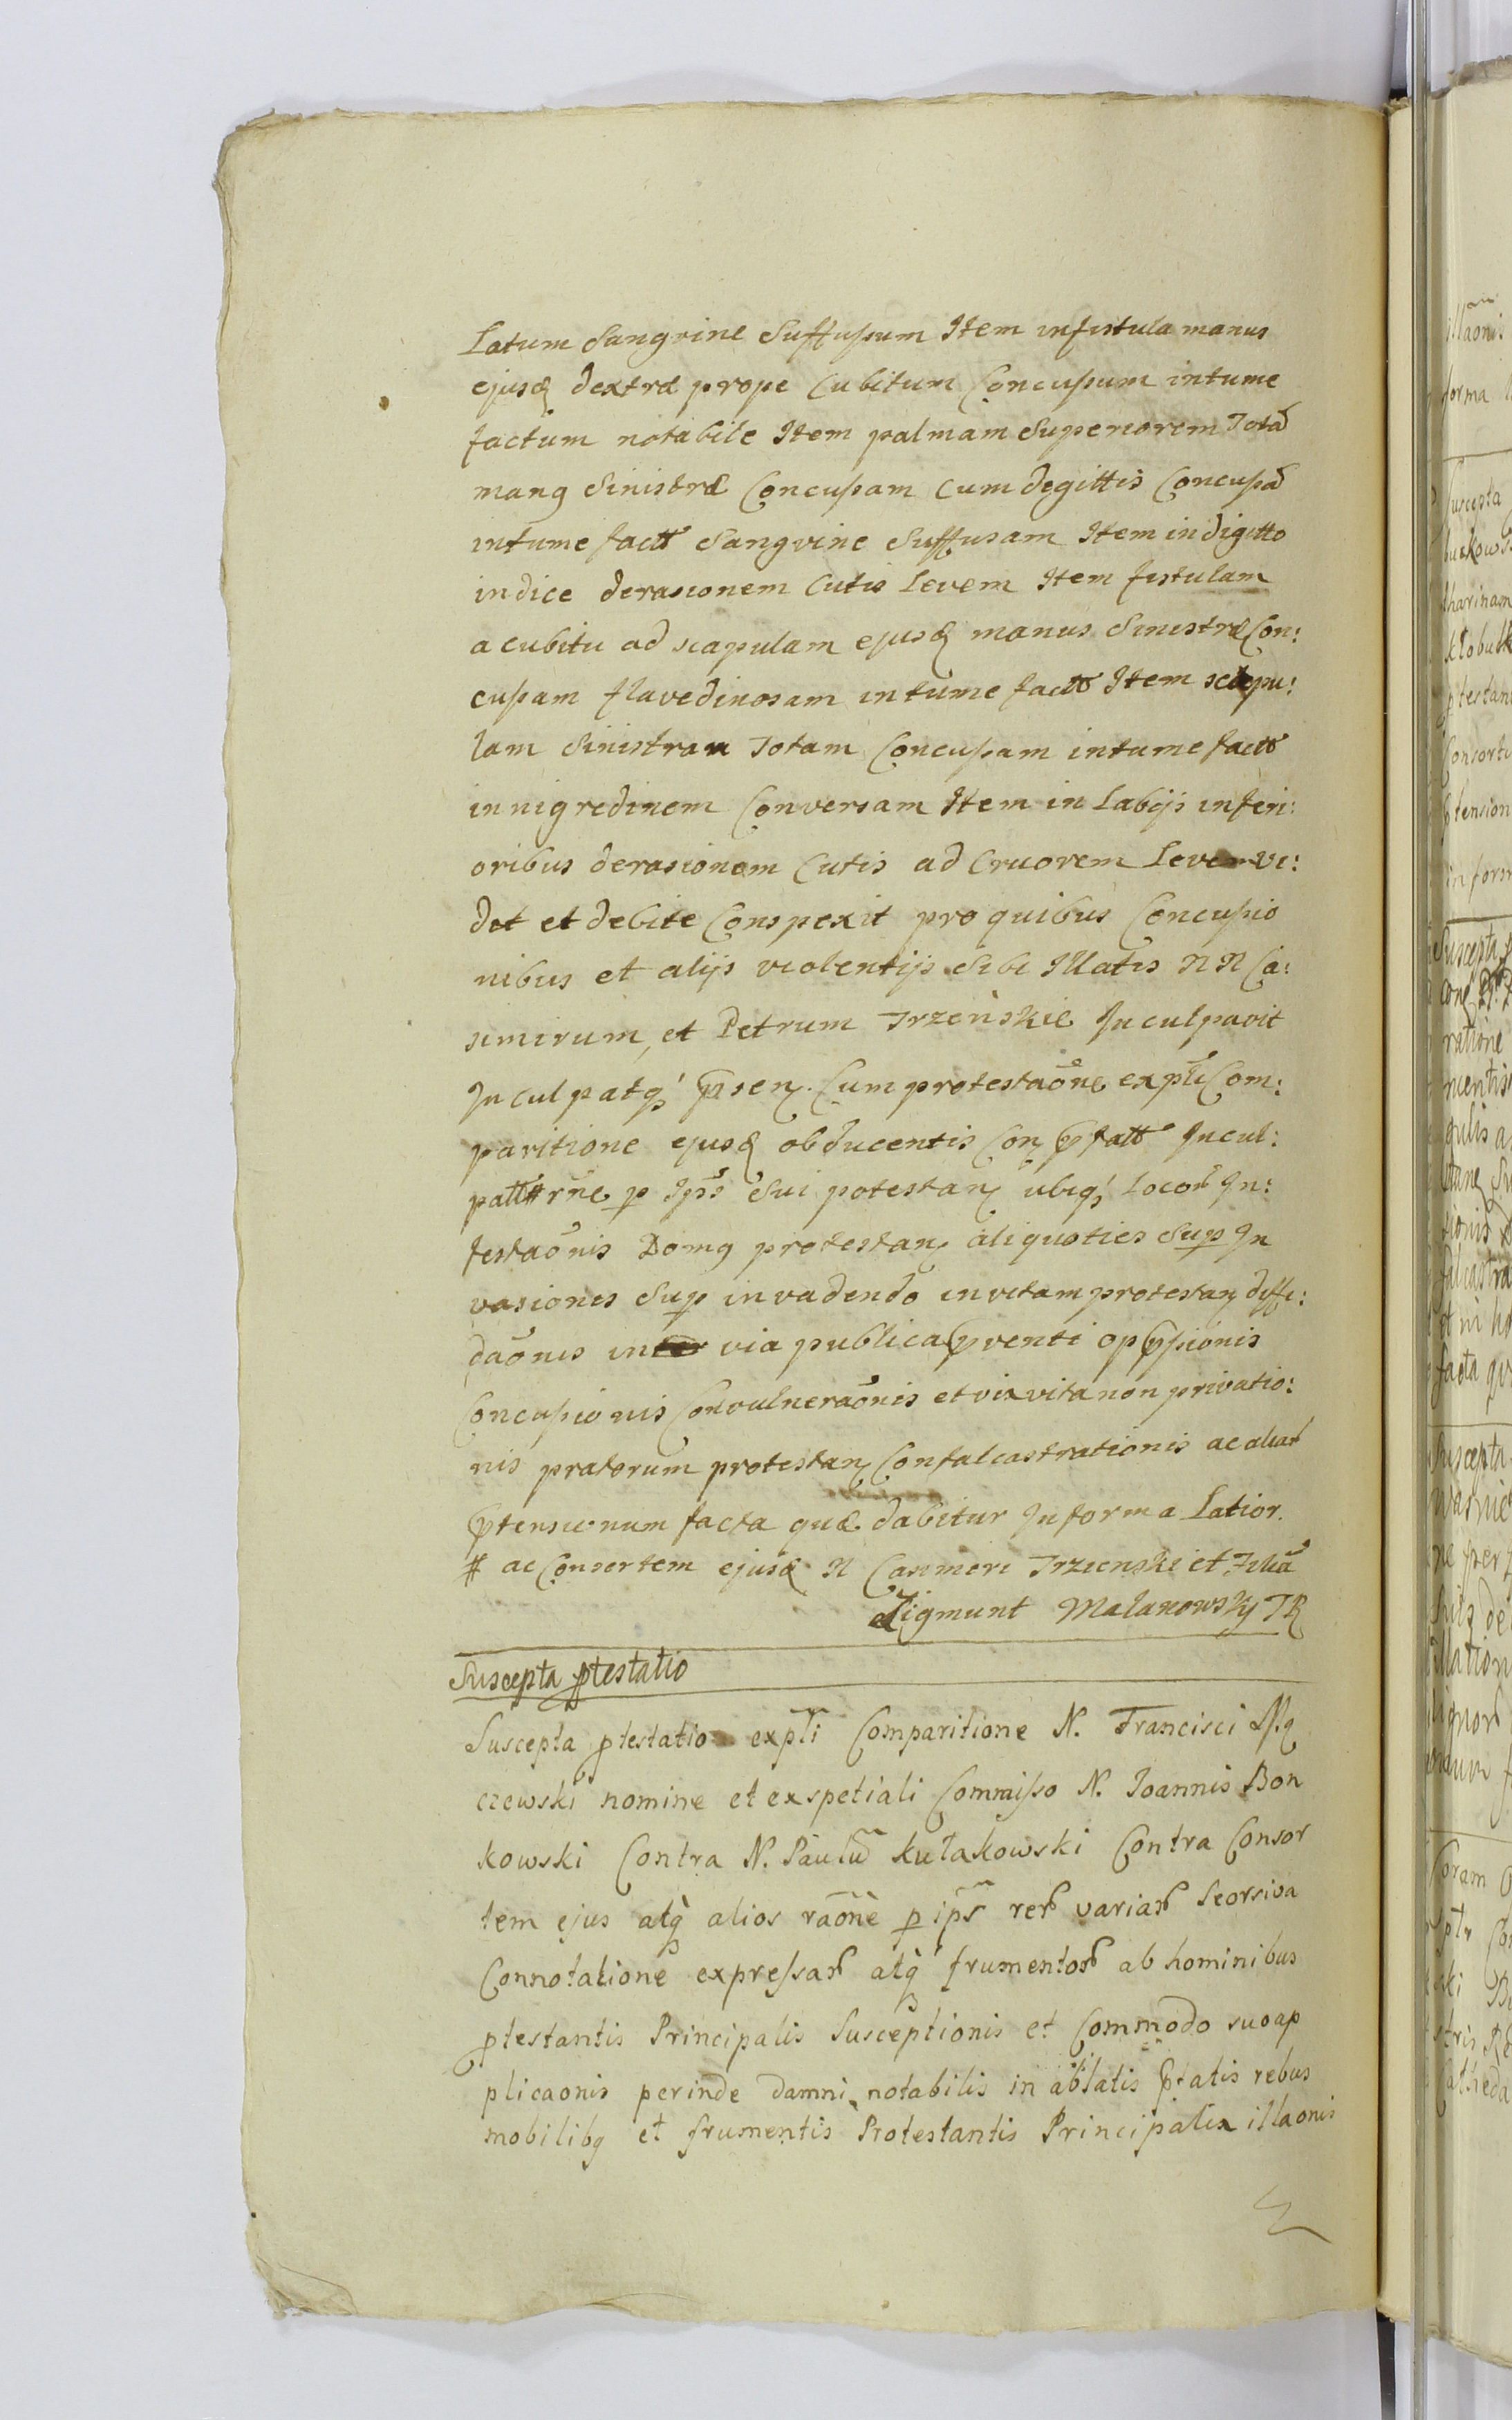 Latum Sangvine Suffusum Item in fistula manus
ejusd dextræ prope Cubitum Concussum intume
factum notabile Item palmam Superiorem Totā
mang Sinistræ Concussam Cum degittis Concussā
intume factt Sangvine Suffusam Item in digitto
indice derasionem Cutis Levem Item fistulam
a cubitu ad scapulam ejusd manus Sinistræ Con:
cussam flavedinosam intume factt Item scapu:
lam Sinistram Totam Concussam intume factt
in nigredinem Conversam Item in Labijs inferi:
oribus derasionem Cutis ad Cruorem Levem vi:
dit et debite Conspexit pro quibus Concussio
nibus et alijs violentijs Sibi Illatis N N Ca:
simirum, et Petrum Trzeńskie Inculpavit
Inculpatq' p̄sen. Cum protestaōne exp̄li Com:
paritione ejusd obducentis Con p̄fatt Incul:
patt # rn̄e p Ip̄s Sui potestan ubiq' Locoꝝ In:
festaōnis Domg protestan aliquoties Sup In
vasiones Sup invadendo in vitam protestan diffi:
daōnis in via publica p̄venti op p̄ssionis
Concussionis Convulneraōnis et vix vita non privatio:
nis pratorum protestan Confalcastrationis ac aliaꝝ
p̄tensionum facta quæ dabitur In forma Latior.
# ac Consortem ejusd N Casimeri Trzienski et Filiā
Zigmunt Malanowsky TR
Suscepta ptestatio
Suscepta ptestatio exp̄li Comparitione N. Francisci
czewski nomine et ex spetiali Commisso N. Joannis Bon
kowski Contra N. Paulū Kułakowski Contra Consor
tem ejus atq̀ alios raōnè p ip̄s reꝝ variaꝝ Seorsiva
Connotatione expressaꝝ atq̀ frumentoꝝ ab hominibus
ptestantis Principalis Susceptionis et Commodo suo ap
plicaonis perinde damni notabilis in ablatis p̄tatis rebus
mobilibq et frumentis Protestantis Principalis illaonis